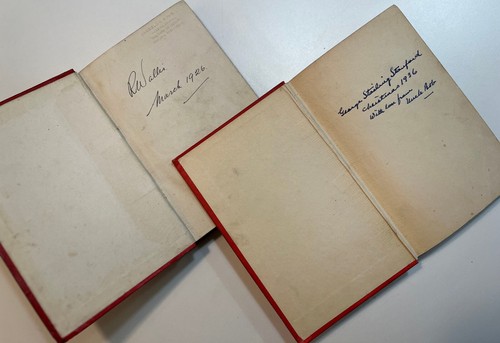 R Waller
March 1926
George Stirling Stanford
Christmas 1936
With love from
Uncle Bob